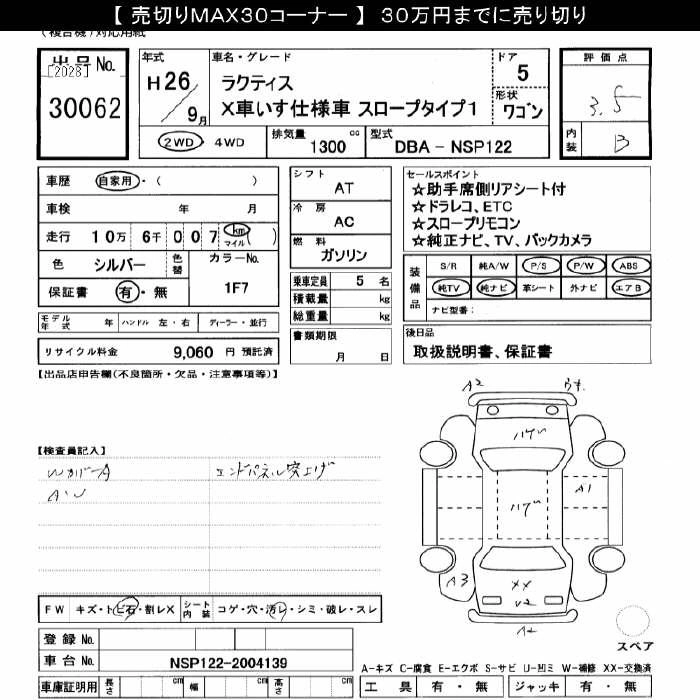 【 売切りMAX30コーナー 】 30万円までに売り切り
(複合機)対応用紙
出品No.
[2028]
30062
年式
H26/9月
車名・グレード
ラクティス
X車いす仕様車 スロープタイプ1
ドア
5
形状
ワゴン
2WD ・ 4WD
排気量 1300 cc
型式 DBA - NSP122
評価点
3.5
内装 B
車歴 自家用・( )
車検 年 月
走行 10万 6千 007 km マイル ( )
色 シルバー 色替 カラーNo.
保証書 有・無 1F7
モデル年式 年 ハンドル 左・右 ディーラー・並行
リサイクル料金 9,060 円 預託済
シフト
AT
冷房
AC
燃料
ガソリン
乗車定員 5 名
積載量 kg
総重量 kg
書類期限
月 日
セールスポイント
☆助手席側リアシート付
☆ドラレコ、ETC
☆スロープリモコン
☆純正ナビ、TV、バックカメラ
装備品
S/R 純A/W P/S P/W ABS
純TV 純ナビ 革シート 外ナビ エアB
ナビ型番:
後日品
取扱説明書、保証書
【出品店申告欄(不良箇所・欠品・注意事項等)】
【検査員記入】
WカバーA エンドパネル突上げ
A・U
A2
ハゲ
ハゲ
A1
A3
XX
U2
A2
スペア
FW キズ・トビ石・割レX シート内装 コゲ・穴・汚レ・シミ・破レ・スレ
登録 No.
車台 No. NSP122-2004139
車庫証明用 長さ cm 幅 cm 高さ cm
A-キズ C-腐食 E-エクボ S-サビ U-凹ミ W-補修 XX-交換済
工具 有・無 ジャッキ 有・無